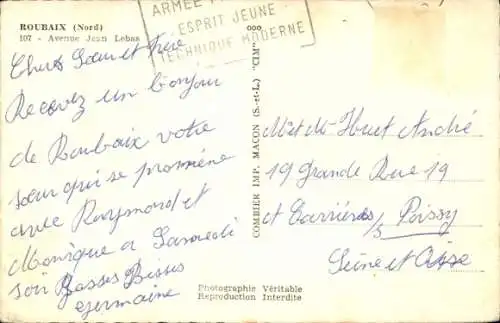 ROUBAIX (Nord)
107 - Avenue Jean Lebas
ARMÉE
ESPRIT JEUNE
TECHNIQUE MODERNE
Chers Sœur et frère
Recevez un bonjour
de Roubaix votre
sœur qui se promène
avec Raymond et
Monique a Samedi
soir Basses Bisses
Germaine
COMBIER IMP. MACON (S.-et-L.) "CIM"
Mr et Me Huet André
19 Grande Rue 19
et Carrières s/ Poissy
Seine et Oise
Photographie Véritable
Reproduction Interdite